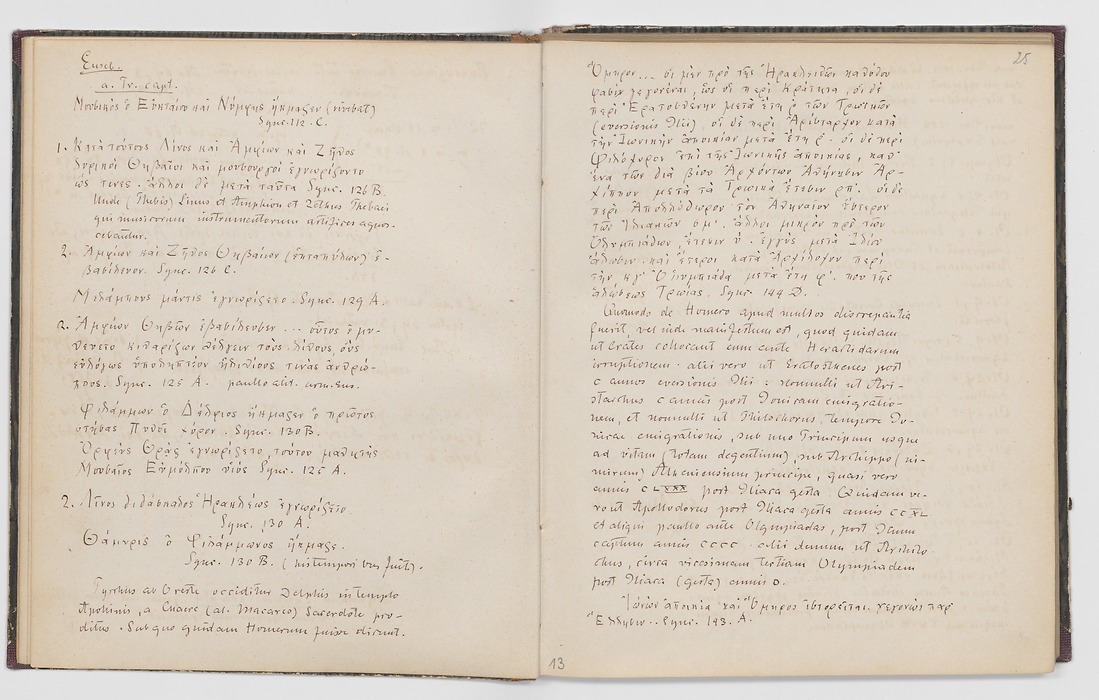 Euseb.
a. Tr. capt.
Μουσικὸς ὁ καὶ Νύμφης ἤκμαζεν (vivebat)
Sync. 112 C.
1. Κατὰ τούτους Λίνος καὶ Ἀμφίων καὶ Ζῆθος
λυρικοὶ Θηβαῖοι καὶ μουσουργοὶ ἐγνωρίζοντο
ὥς τινες. ἄλλοι δὲ μετὰ ταῦτα Sync. 126 B.
Unde (Thebis) Linus et Amphion et Zethus Thebaei
qui musicorum instrumentorum artifices agnos-
cebantur.
2. Ἀμφίων καὶ Ζῆθος Θηβαίων (ἑπταπύλων) ἐ-
βασίλευον. Sync. 126 C.
Μελάμπους μάντις ἐγνωρίζετο. Sync. 129 A.
2. Ἀμφίων Θηβῶν ἐβασίλευσεν ... οὗτος ἐμυ-
θεύετο κιθαρίζων θέλγειν τοὺς λίθους, οὓς
εὐλόγως ὑποληπτέον ἠλιθίους τινὰς ἀνθρώ-
πους. Sync. 125 A. paullo alit. arm. eus.
Φιλάμμων ὁ Δέλφιος ἤκμαζεν ὁ πρῶτος
στήσας Πυθοῖ χόρον. Sync. 130 B.
Ὀρφεὺς Θρᾷξ ἐγνωρίζετο, τούτου μαθητὴς
Μουσαῖος Εὐμόλπου υἱός Sync. 125 A.
2. Λίνος διδάσκαλος Ἡρακλέως ἐγνωρίζετο
Sync. 130 A.
Θάμυρις ὁ Φιλάμμωνος ἤκμαζε.
Sync. 130 B. (his temporibus fuit).
Pyrrhus ab Oreste occiditur Delphis in templo
Apollinis, a (al. Macareo) Sacerdote pro-
ditus. Sub quo quidam Homerum fuisse dicunt.
25
Ὅμηρον ... οἱ μὲν πρὸ τῆς Ἡρακλειδῶν καθόδου
φασὶν γεγονέναι, ὡς οἱ περὶ Κράτητα, οἱ δὲ
περὶ Ἐρατοσθένην μετὰ ἔτη ρ τῶν Τρωικῶν
(eversionis Ilii), οἱ δὲ περὶ Ἀρίσταρχον κατὰ
τὴν Ἰωνικὴν ἀποικίαν μετὰ ἔτη ρ. οἱ δὲ περὶ
Φιλόχορον ἐπὶ τῆς Ἰωνικῆς ἀποικίας, κατ'
ἕνα τῶν διὰ βίου Ἀρχόντων Ἀθήνησιν Ἄρ-
χιππον μετὰ τὰ Τρωικὰ ἔτεσιν ρπ'. οἱ δὲ
περὶ Ἀπολλόδωρον τὸν Ἀθηναῖον ὕστερον
τῶν Ἰλιακῶν σμ'. ἄλλοι μικρὸν πρὸ τῶν
Ὀλυμπιάδων, ἔτεσιν υ'. ἐγγύς μετὰ Ἰλίου
ἅλωσιν. καὶ ἕτεροι κατὰ Ἀρχίλοχον περὶ
τὴν κγ' Ὀλυμπιάδα μετὰ ἔτη φ'. που τῆς
ἁλώσεως Τροίας. Sync. 144 D.
Quamodo de Homero apud multos discrepantia
fuerit, vel inde manifestum est, quod quidam
ut Crates collocant eum ante Heraclidarum
irruptionem. alii vero ut Eratosthenes post
c annos eversionis Ilii: nonnulli ut Ari-
starchus c annis post Jonicam emigratio-
nem, et nonnulli ut Philochorus, tempore Jo-
nicae emigrationis, sub uno Principum usque
ad vitam (totam degentium), sub Archippo (ni-
mirum) Atheniensium principe, quasi vero
annis CLXXX post Iliaca gesta. Quidam ve-
ro ut Apollodorus post Iliaca gesta annis CCXL
et aliqui paullo ante Olympiadas, post Ilium
captum annis CCCC. alii demum ut Archilo-
chus, circa vicesimam tertiam Olympiadem
post Iliaca (gesta) annis D.
Ἰώνων ἀποικία καὶ Ὅμηρος ἱστορεῖται γεγονὼς παρ'
Ἕλλησιν.. Sync. 143. A.
13